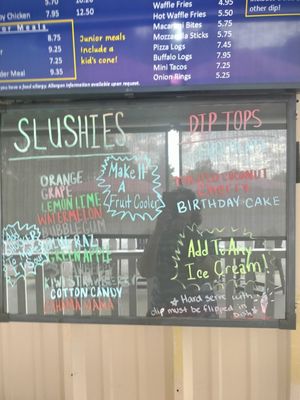 5.70
ay Chicken 7.95 12.50
or Meals
8.75
9.25
9.95
der Meal 9.35
Junior meals
Include a
kid's cone!
you have a food allergy. Allergen information available upon request.
Waffle Fries 4.95
Hot Waffle Fries 5.50
Macaroni Bites 5.75
Mozzarella Sticks 5.75
Pizza Logs 7.45
Buffalo Logs 7.95
Mini Tacos 7.25
Onion Rings 5.25
other dip!
SLUSHIES
ORANGE
GRAPE
LEMON LIME
WATERMELON
BUBBLEGUM
GREEN APPLE
KIWI STRAWBERRY
COTTON CANDY
Make It
A
Fruit Cooler
DIP TOPS
COCONUT
Cherry
BIRTHDAY CAKE
Add To Any
Ice Cream!
Hard serve with
dip must be flipped in
Dish